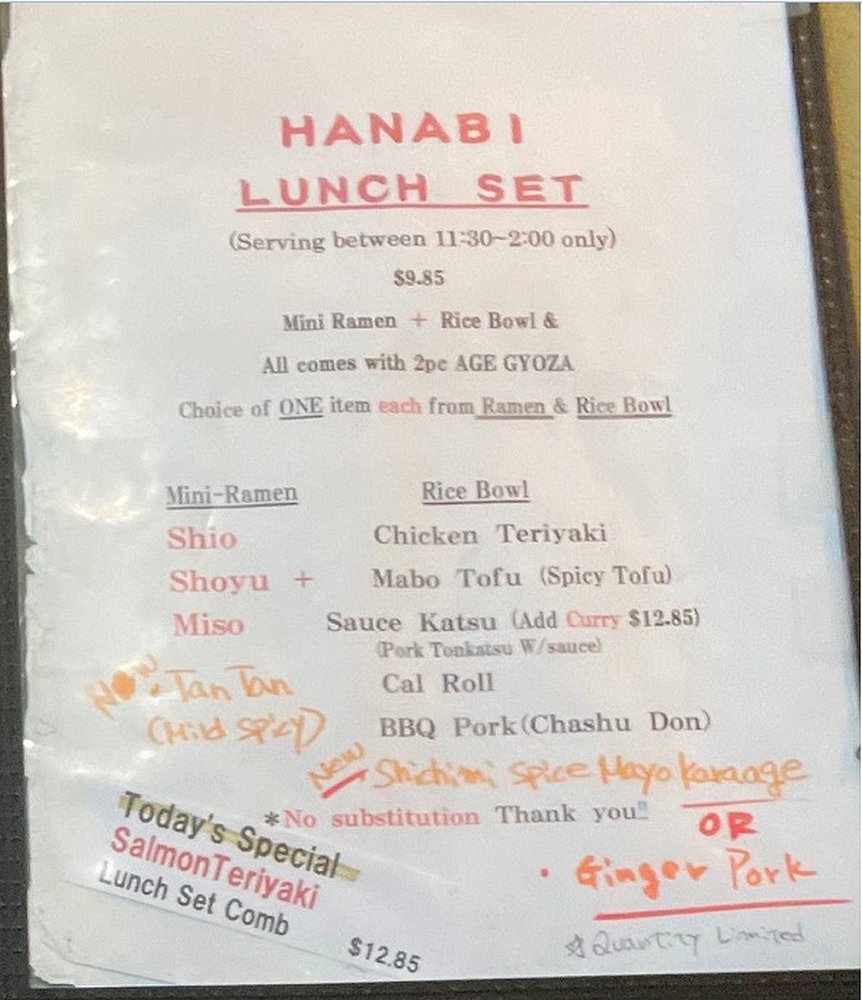 HANABI
LUNCH SET
(Serving between 11:30~2:00 only)
$9.85
Mini Ramen + Rice Bowl &
All comes with 2pc AGE GYOZA
Choice of ONE item each from Ramen & Rice Bowl
Mini-Ramen Rice Bowl
Shio Chicken Teriyaki
Shoyu + Mabo Tofu (Spicy Tofu)
Miso Sauce Katsu (Add Curry $12.85)
(Pork Tonkatsu W/sauce)
New. Tan Tan Cal Roll
(Mild Spicy) BBQ Pork(Chashu Don)
New Shichimi Spice Mayo Karaage
*No substitution Thank you!!
OR
• Ginger Pork
☆ Quantity Limited
Today's Special
SalmonTeriyaki
Lunch Set Comb
$12.85